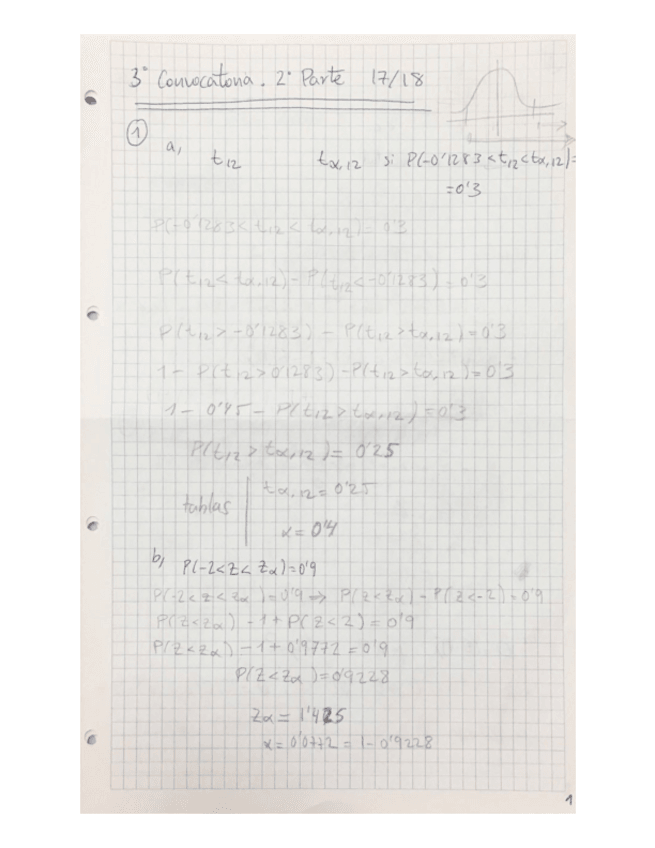 3ª Convocatoria. 2ª Parte 17/18
1
a, t12 tα,12 si P(-0'1283 < t12 < tα,12) =
= 0'3
P(-0'1283 < t12 < tα,12) = 0'3
P(t12 < tα,12) - P(t12 < -0'1283) = 0'3
P(t12 > -0'1283) - P(t12 > tα,12) = 0'3
1 - P(t12 > 0'1283) - P(t12 > tα,12) = 0'3
1 - 0'45 - P(t12 > tα,12) = 0'3
P(t12 > tα,12) = 0'25
tablas | tα,12 = 0'25
α = 0'4
b, P(-2 < Z < Zα) = 0'9
P(-2 < Z < Zα) = 0'9 ⇒ P(Z < Zα) - P(Z < -2) = 0'9
P(Z < Zα) - 1 + P(Z < 2) = 0'9
P(Z < Zα) - 1 + 0'9772 = 0'9
P(Z < Zα) = 0'9228
Zα = 1'425
α = 0'0772 = 1 - 0'9228
1